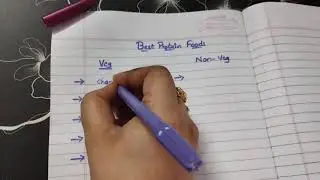 Best Protein Foods
Veg Non-Veg
→ →
→
→
→
→